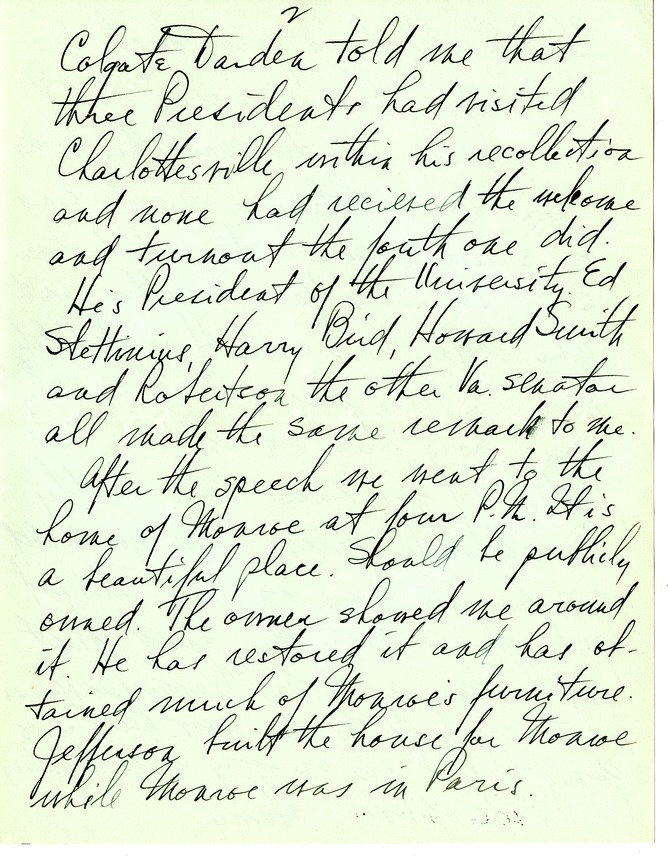 2
Colgate Darden told me that
three Presidents had visited
Charlottesville within his recollection
and none had recieved the welcome
and turnout the fouth one did.
He's President of the University. Ed
Stettinius, Harry Bird, Howard Smith
and Robertson the other Va. senator
all made the same remark to me.
After the speech we went to the
home of Monroe at four P.M. It is
a beautiful place. Should be publicly
owned. The owner showed me around
it. He has restored it and has ob-
tained much of Monroe's furniture.
Jefferson built the house for Monroe
while Monroe was in Paris.